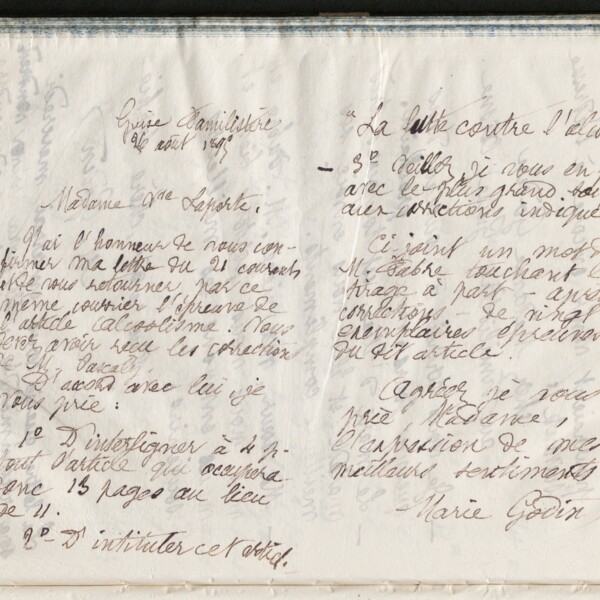 Guise Familistère
26 août 1895
Madame Vve Laporte.
J'ai l'honneur de vous con-
firmer ma lettre du 21 courant
et de vous retourner par ce
même courrier l'épreuve de
l'article alcoolisme. Vous
devez avoir reçu les corrections
de M. Pascaly.
D'accord avec lui, je
vous prie :
1º D'interligner à 4 p.
tout l'article qui occupera
donc 13 pages au lieu
de 11.
2º D'intituler cet article.
"La lutte contre l'alco
3º Veiller, je vous en
avec le plus grand soin
aux corrections indiqué
Ci-joint un mot de
M. Fabre touchant le
tirage à part - après
corrections - de vingt
exemplaires épreuves
du dit article.
Agréez, je vous
prie, Madame,
l'expression de mes
meilleurs sentiments
Marie Godin